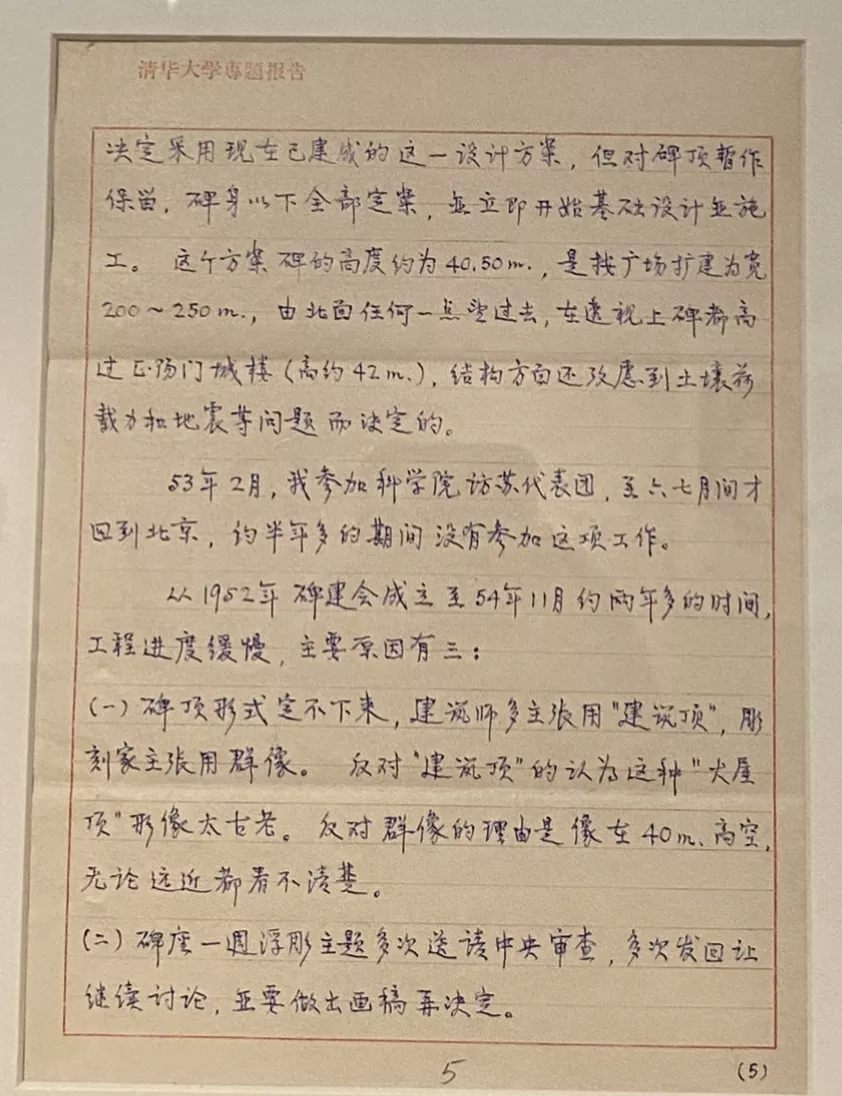 清华大学專題报告
决定采用现在已建成的这一设计方案，但对碑顶暂作
保留，碑身以下全部定案，並立即开始基础设计並施
工。 这个方案碑的高度约为40.50m.，是按广场扩建为宽
200～250m.，由北面任何一点望过去，在透视上碑都高
过正阳门城楼（高约42m.），结构方面还攷虑到土壤荷
载力和地震等问题而决定的。
53年2月，我参加科学院访苏代表团，至六七月间才
回到北京，约半年多的期间没有参加这项工作。
从1952年碑建会成立至54年11月约两年多的时间，
工程进度缓慢，主要原因有三：
(一) 碑顶形式定不下来，建筑师多主张用"建筑顶"，彫
刻家主张用群像。 反对"建筑顶"的认为这种"大屋
顶"形像太古老。 反对群像的理由是像在40m.高空，
无论远近都看不清楚。
(二) 碑座一週浮彫主题多次送请中央审查，多次发回让
继续讨论，並要做出画稿再决定。
5
(5)